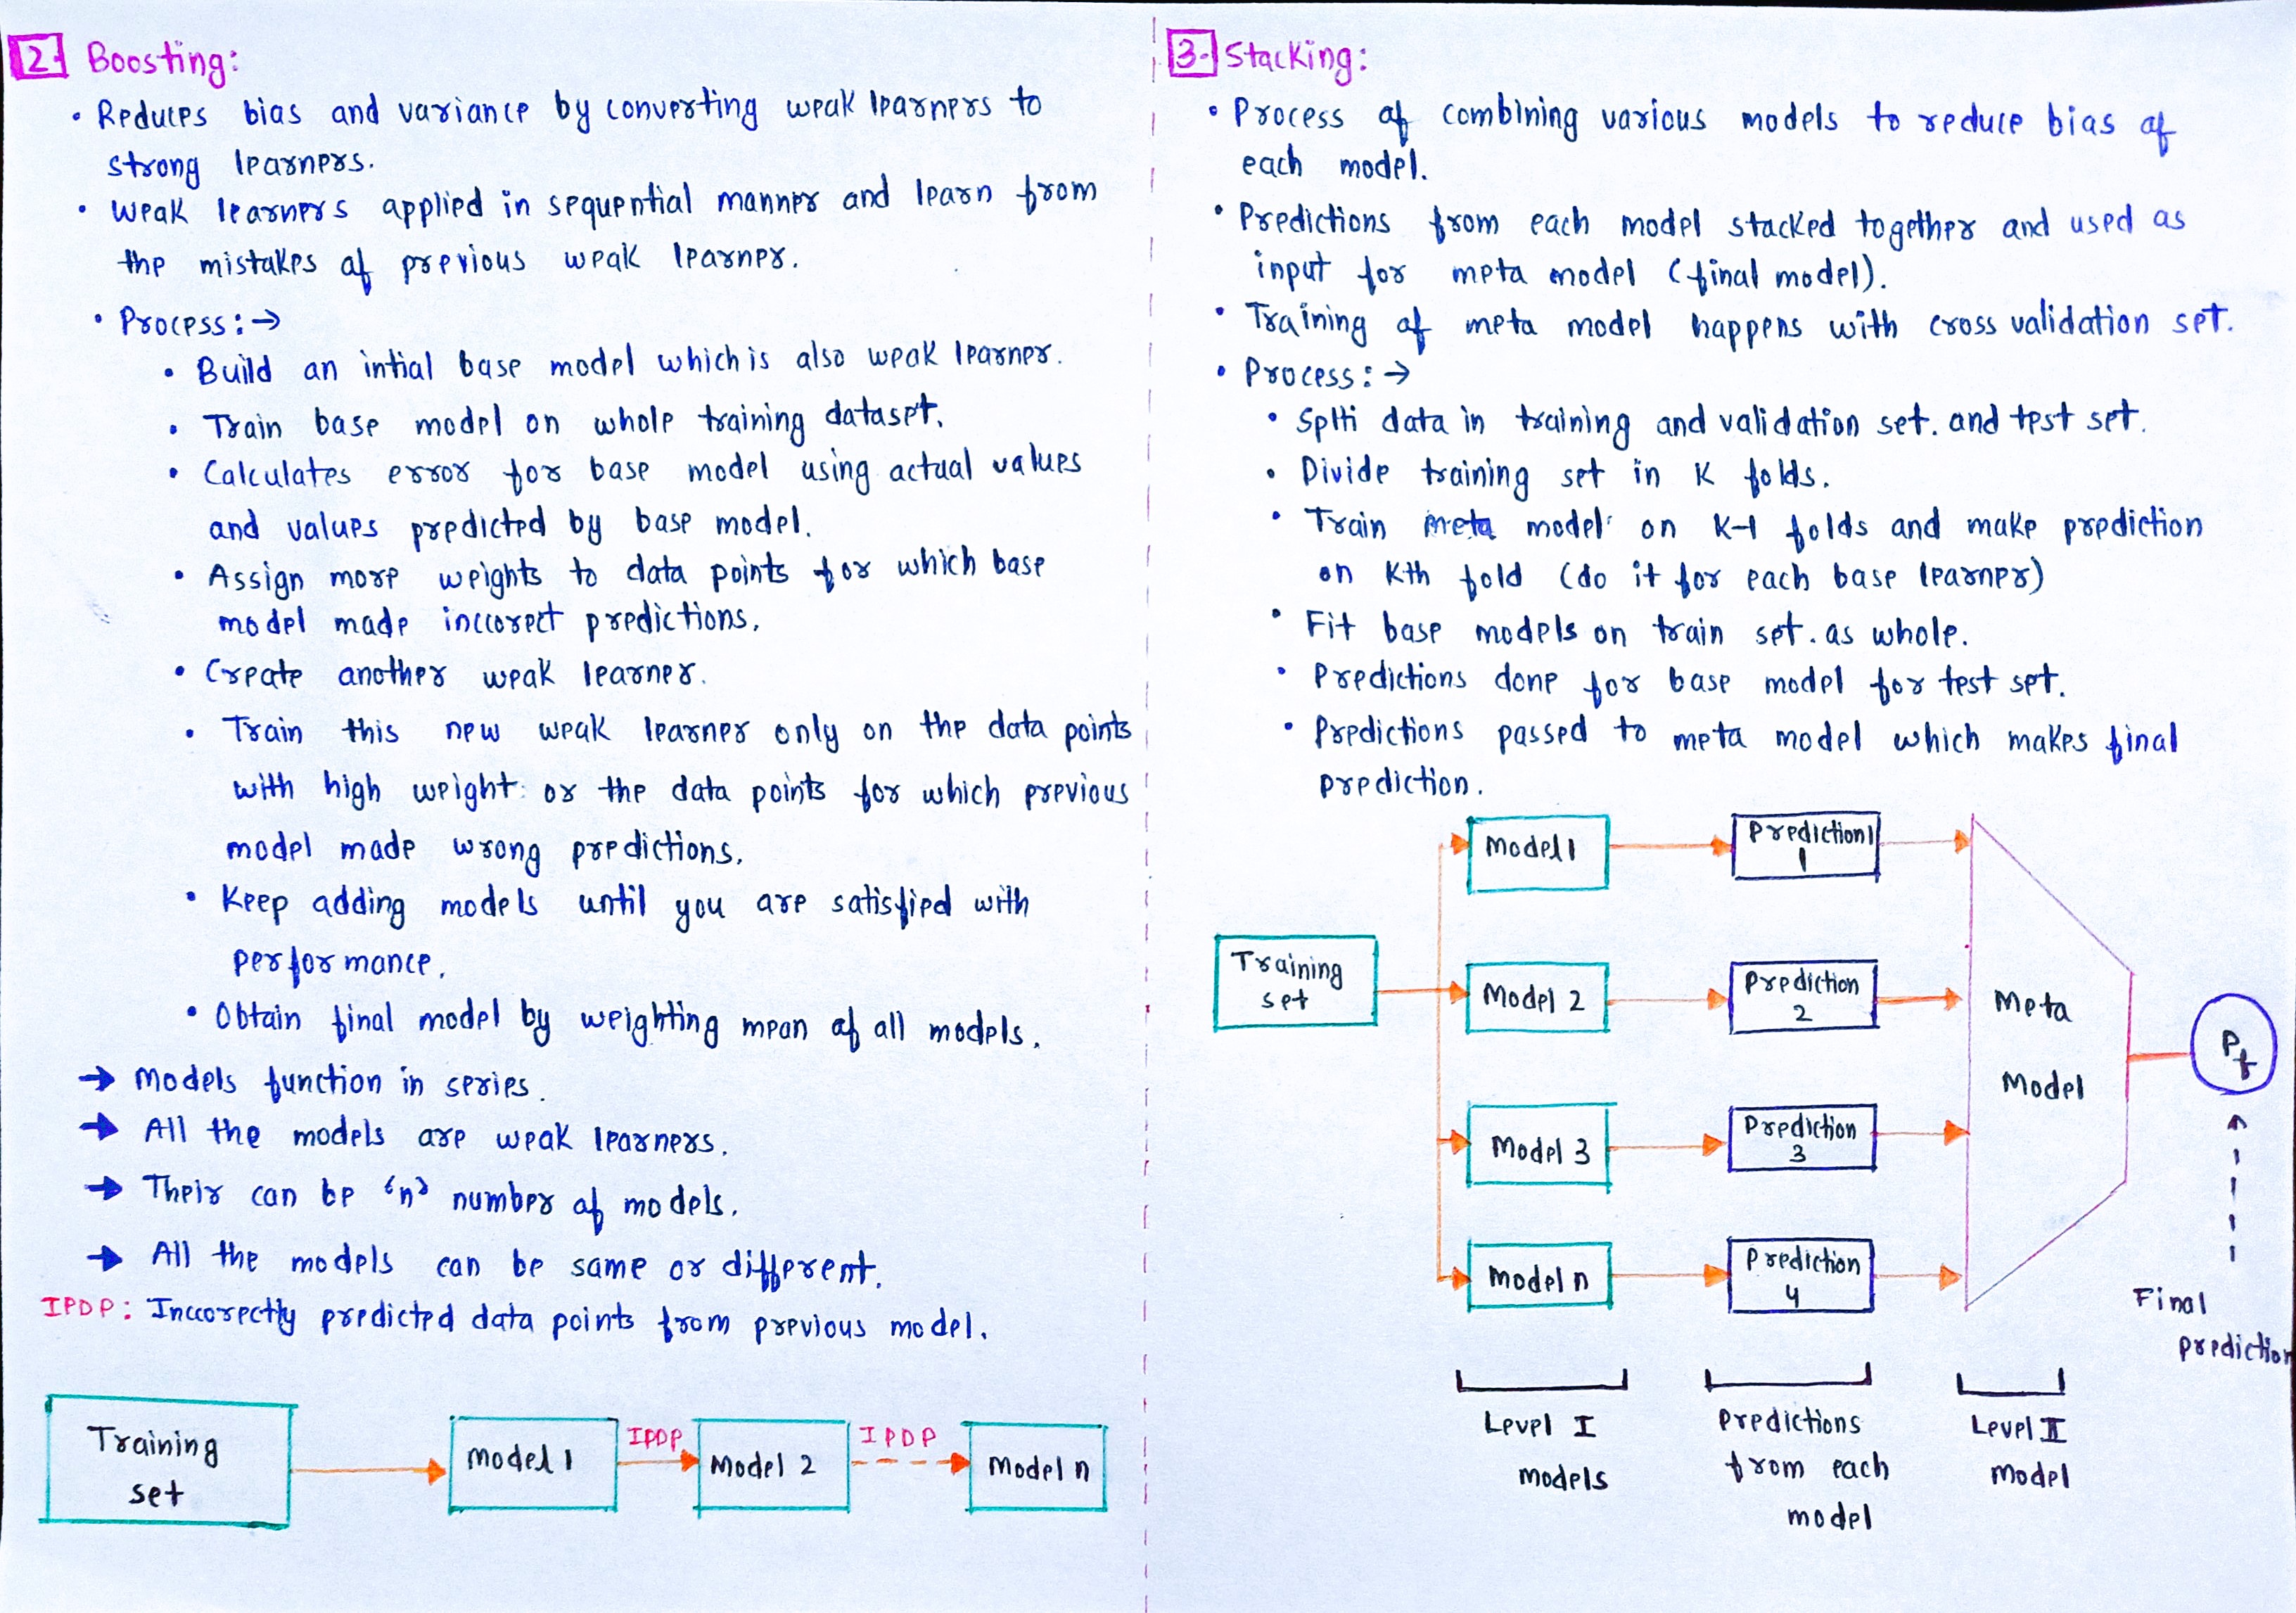 2. Boosting:
• Reduces bias and variance by converting weak learners to
strong learners.
• Weak learners applied in sequential manner and learn from
the mistakes of previous weak learner.
• Process: →
• Build an intial base model which is also weak learner.
• Train base model on whole training dataset.
• Calculates error for base model using actual values
and values predicted by base model.
• Assign more weights to data points for which base
model made inccorect predictions.
• Create another weak learner.
• Train this new weak learner only on the data points
with high weight or the data points for which previous
model made wrong predictions.
• Keep adding models until you are satisfied with
performance.
• Obtain final model by weighting mean of all models.
→ Models function in series.
→ All the models are weak learners.
→ Their can be 'n' number of models.
→ All the models can be same or different.
IPDP: Inccorectly predicted data points from previous model.
Training
set
Model 1
IPDP
Model 2
IPDP
Model n
3. Stacking:
• Process of combining various models to reduce bias of
each model.
• Predictions from each model stacked together and used as
input for meta model (final model).
• Training of meta model happens with cross validation set.
• Process: →
• Splti data in training and validation set. and test set.
• Divide training set in K folds.
• Train meta model on K-1 folds and make prediction
on Kth fold (do it for each base learner)
• Fit base models on train set. as whole.
• Predictions done for base model for test set.
• Predictions passed to meta model which makes final
prediction.
Training
set
Model 1
Prediction1
1
Model 2
Prediction
2
Model 3
Prediction
3
Model n
Prediction
4
Meta
Model
Pf
Final
prediction
Level I
models
Predictions
from each
model
Level II
model